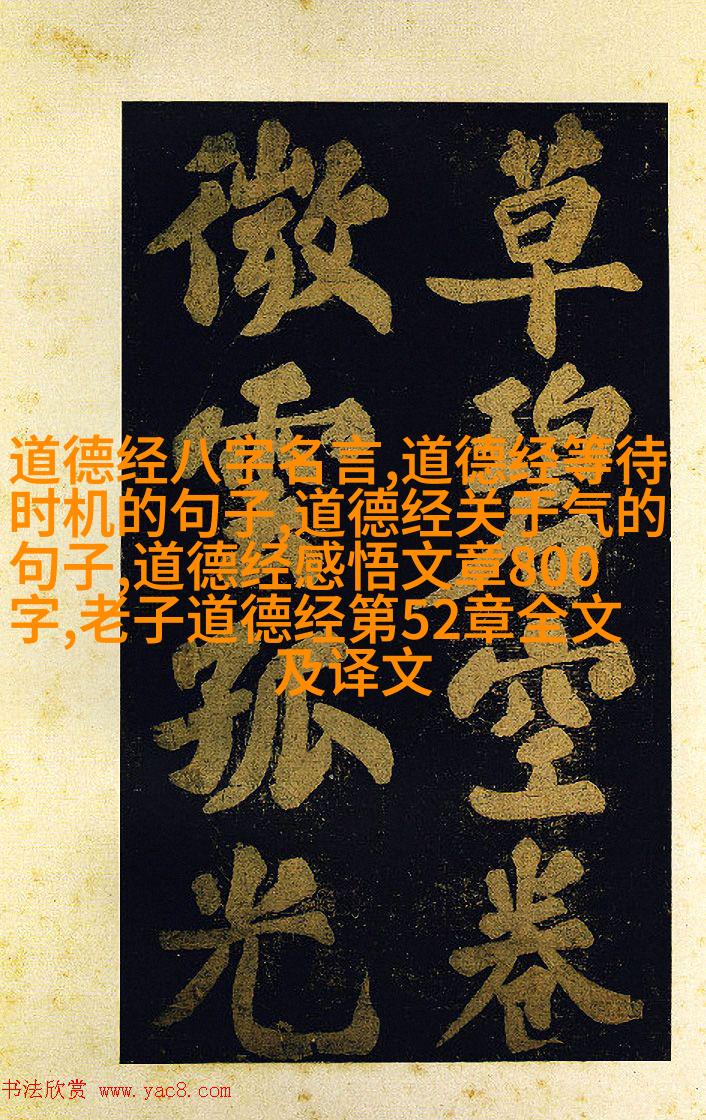 草碧空卷
微雲孤光
道德经八字名言,道德经等待
时机的句子,道德经关于气的
句子,道德经感悟文章800
字,老子道德经第52章全文
及译文
书法欣赏 www.yac8.com